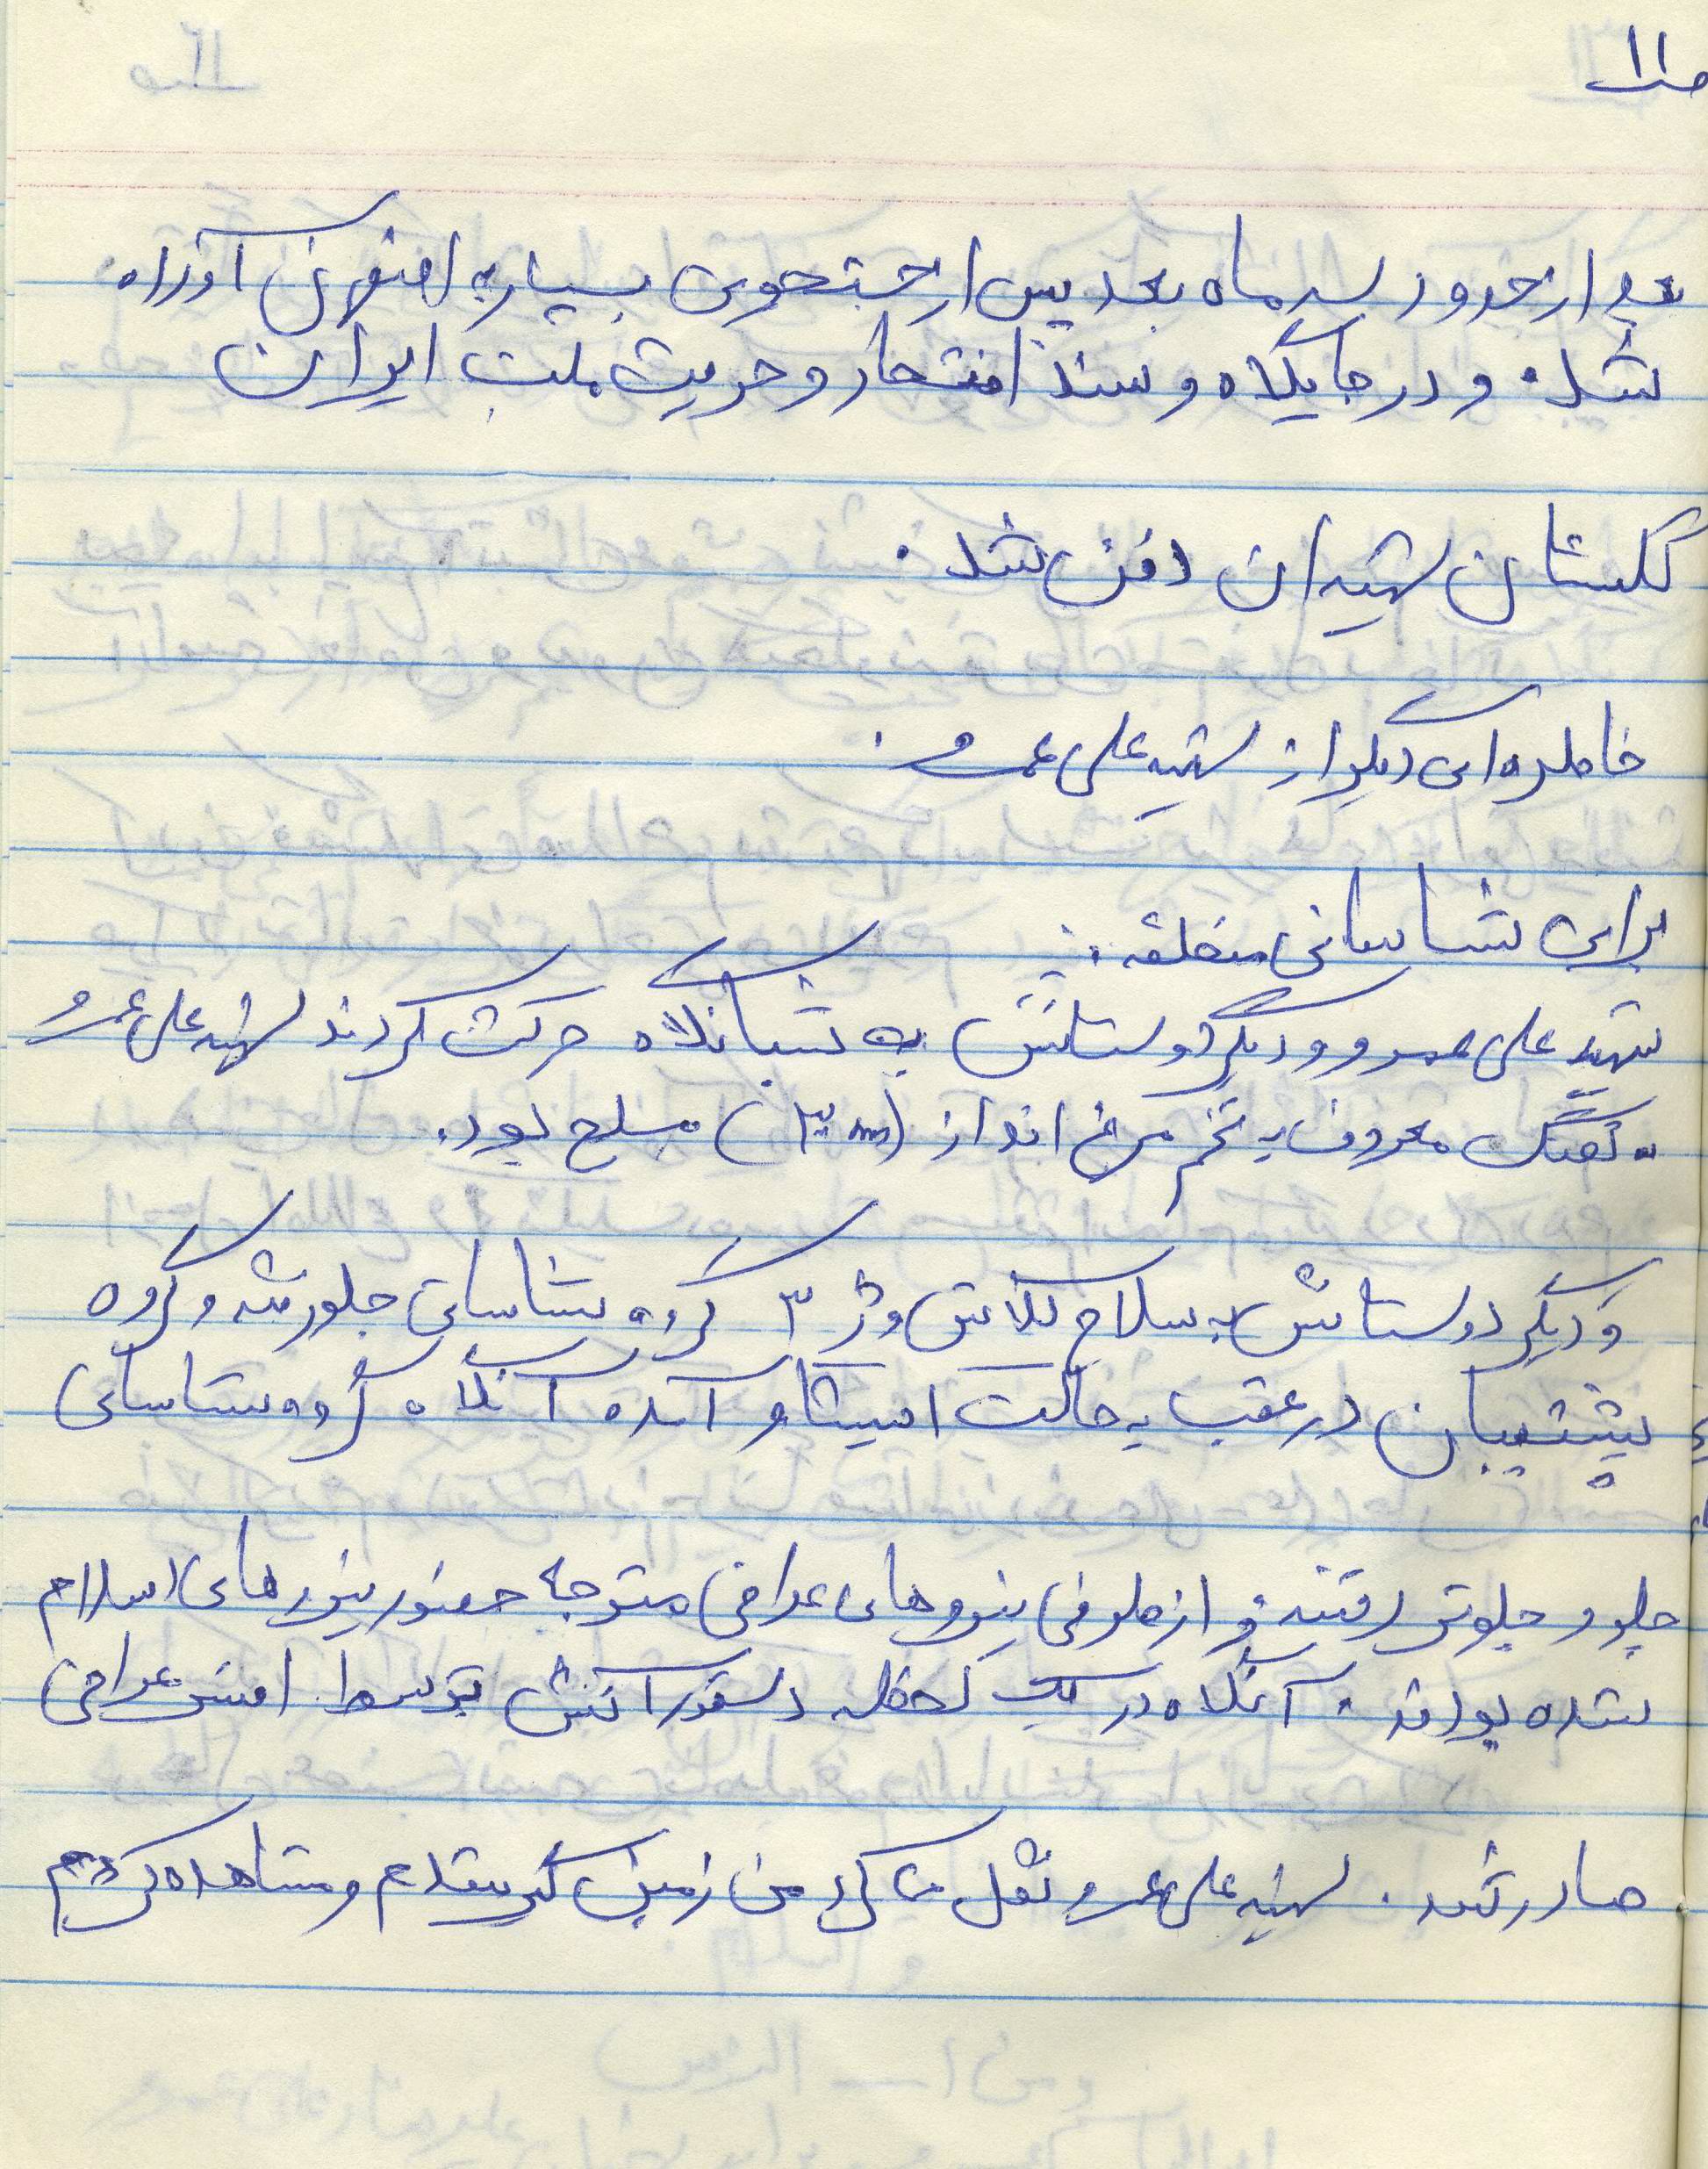 ص ۱۱
بعد از حدود سه ماه بعد پس از جستجوی بسیار به اصفهان آورده
شد. و در جایگاه و سند افتخار و حریت ملت ایران
گلستان شهیدان دفن شد.
خاطره‌ای دیگر از شهید علی عمرو.
برای شناسائی منطقه:
شهید علی عمرو و دیگر دوستانش به شبانگاه حرکت کردند شهید علی عمرو
به تفنگ معروف به تخم مرغ انداز ( ) مسلح بود.
و دیگر دوستانش به سلاح کلاش و ژ ۳ گروه شناسائی جلو رفته و گروه
پشتیبان در عقب به حالت آمده آنگاه گروه شناسائی
جلو و جلوتر رفتند و از طرفی نیروهای عراقی متوجه حضور نیروهای اسلام
شده بودند. آنگاه در یک لحظه دستور آتش توسط افسر عراقی
صادر شد. شهید علی عمرو نقل می کرد من زمین گیر شدم و مشاهده کردم